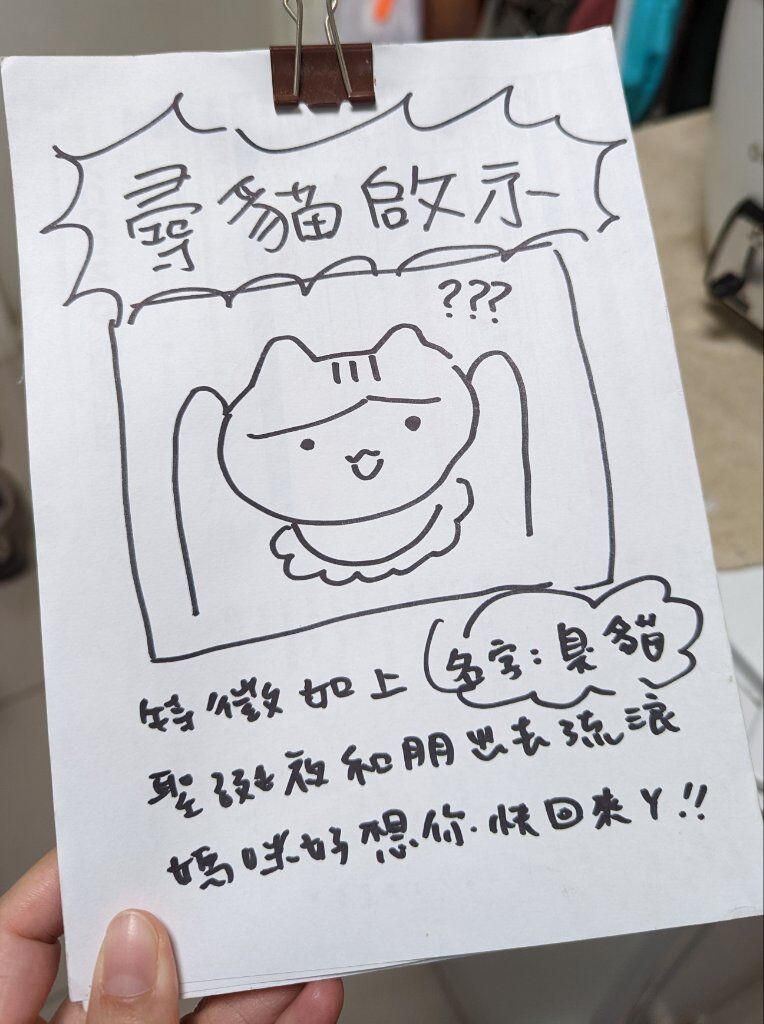 尋貓啟示
???
名字:臭貓
特徵如上
聖誕夜和朋出去流浪
媽咪好想你.快回來ㄚ!!